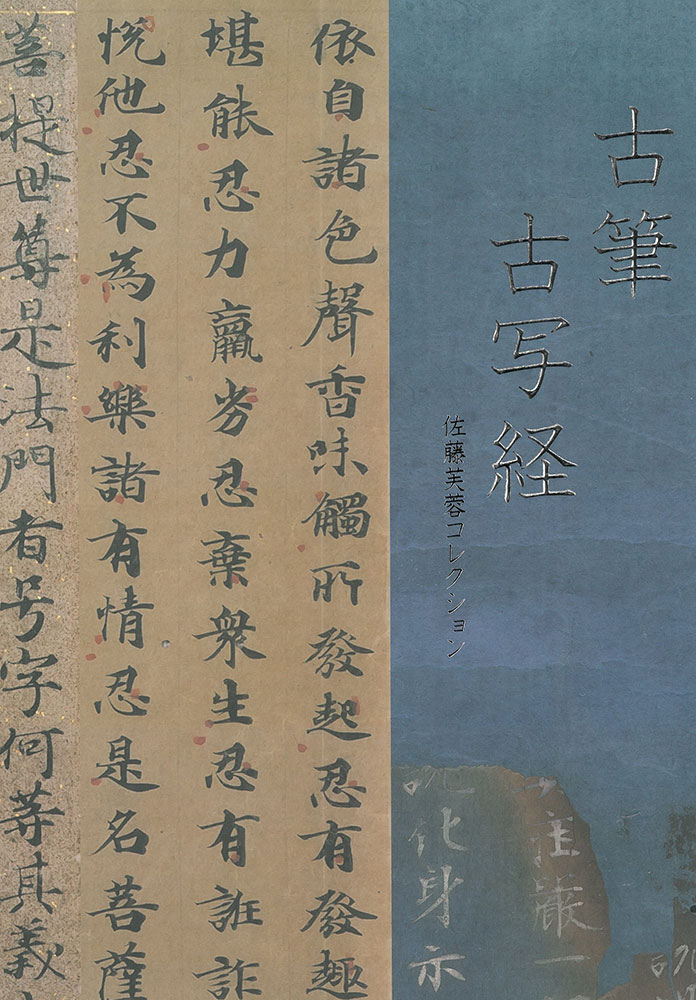 古筆
古写経
佐藤芙蓉コレクション
主嚴一
化身示
依自諸色聲香味觸所發起忍有發趣
堪能忍力羸劣忍棄衆生忍有誑詐
悅他忍不為利樂諸有情忍是名菩薩
菩提世尊是法門者号字何等其義